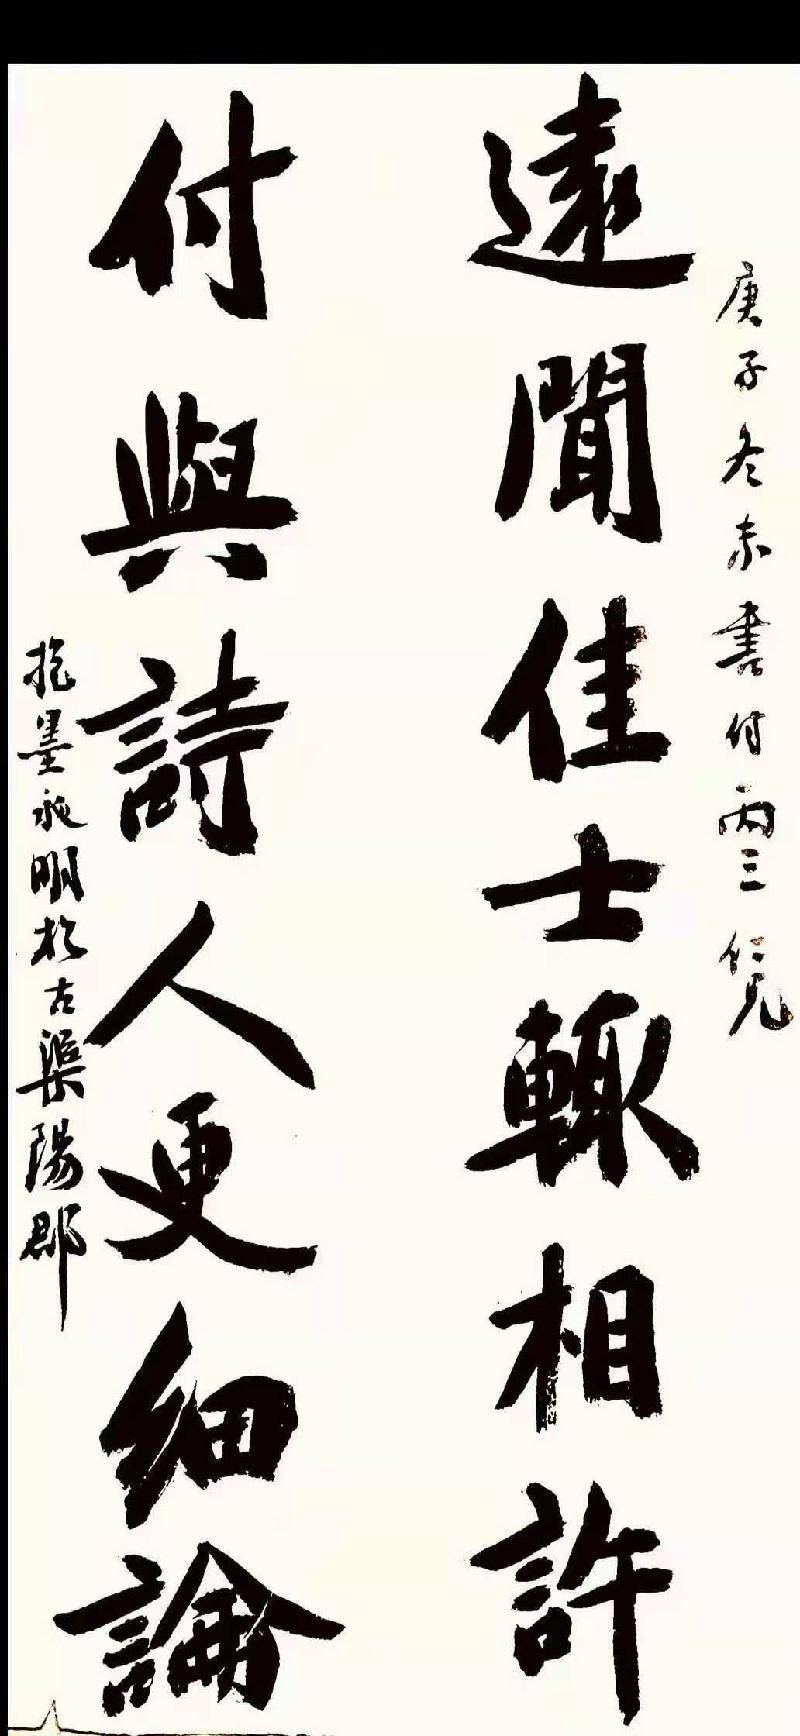 庚子冬末書付丙三仁兄
遠聞佳士輒相許
付與詩人更細論
墨飛明於古渠陽郡